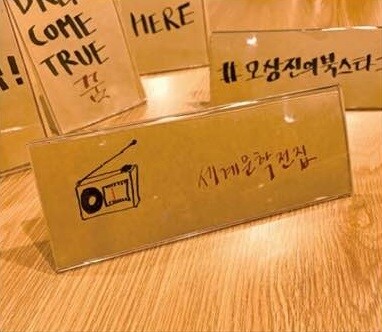 COME
TRUE
꿈
HERE
#오상진의북스타그
세계문학전집